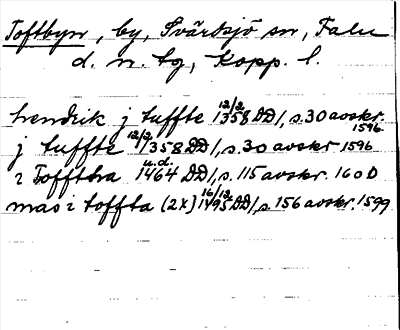 Toftbyn, by, Svärdsjö sn, Falu
d. n. tg, Kopp. l.
hendrik j tuffte 12/2 1358 DD 1, s. 30 avskr. 1596
j tuffte 12/2 1358 DD 1, s. 30 avskr 1596
i Toffthra u.d. 1464 DD 1, s. 115 avskr. 1600
mas i toffta (2x) 16/12 1495 DD 1, s. 156 avskr. 1599